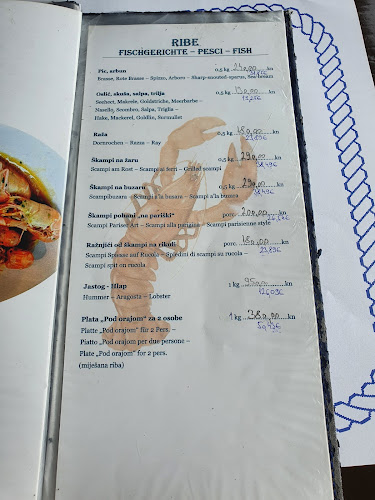 RIBE
FISCHGERICHTE – PESCI – FISH
Pic, arbun 0,5 kg kn
Brasse, Rote Brasse – Spizzo, Arboro – Sharp-snouted-sparus, Sea bream
Oslić, skuša, salpa, trilja 0,5 kg 150,00 kn
Seehect, Makrele, Goldstrieche, Meerbarbe –
Nasello, Scombro, Salpa, Triglia –
Hake, Mackerel, Goldlin, Surmullet
Raža 0,5 kg 180,00 kn
Dornrochen – Razza – Ray 23,89€
Škampi na žaru 0,5 kg 290,00 kn
Scampi am Rost – Scampi ai ferri – Grilled scampi 38,49€
Škampi na buzaru 0,5 kg 290,00 kn
Scampibuzara – Scampi a la buzara – Scampi alla buzara 38,49€
Škampi pohani „na pariški" porc. 200,00 kn
Scampi Pariser Art – Scampi alla parigina – Scampi parisienne style 26,54€
Ražnjići od škampi na rikuli porc. 180,00 kn
Scampi Spiesse auf Rucola – Spiedini di scampi su rucola – 23,89€
Scampi spit on rucola
Jastog - Hlap 1 kg kn
Hummer – Aragosta – Lobster
Plata „Pod orajom" za 2 osobe 1 kg 380,00 kn
Platte „Pod orajom" für 2 Pers. – 50,43€
Piatto „Pod orajom per due persone –
Plate „Pod orajom" for 2 pers.
(miješana riba)